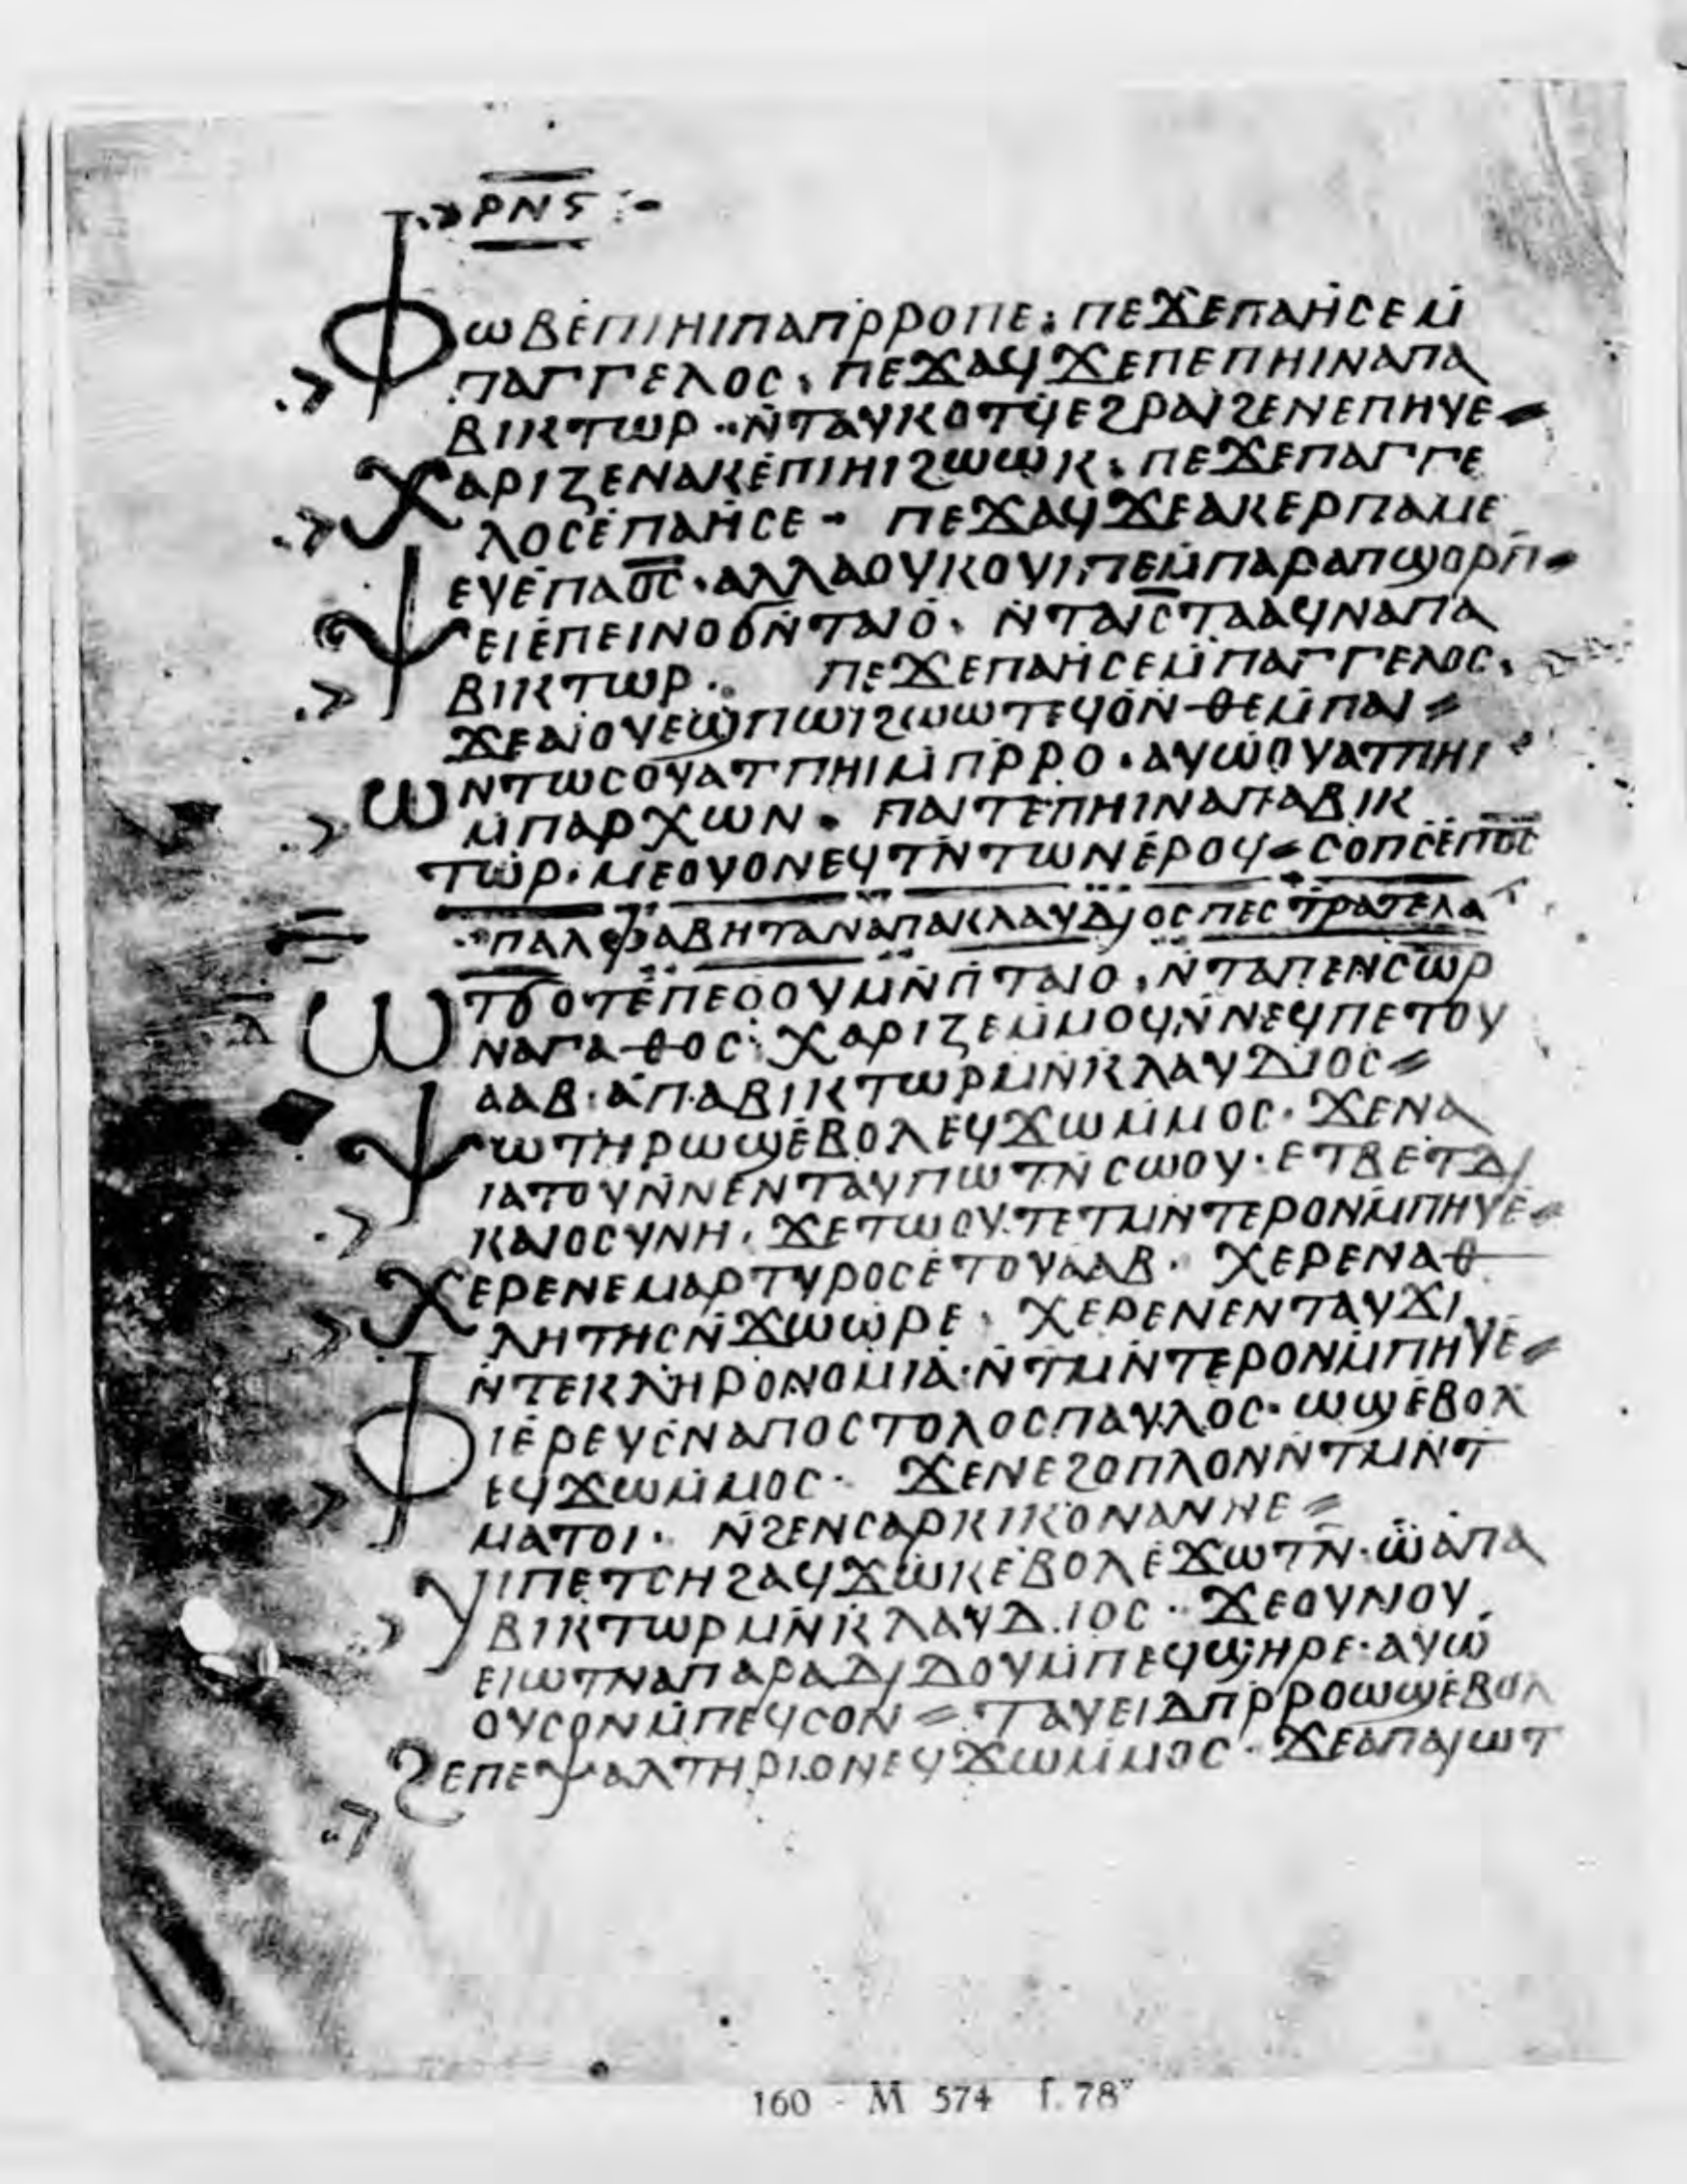 ⲣⲛⲋ
ⲫⲱⲃⲉⲡⲓⲏⲓⲡⲁⲡⲣ̄ⲣⲟⲡⲉ: ⲡⲉϫⲉⲡⲁⲏⲥⲉⲙ̄
ⲡⲁⲅⲅⲉⲗⲟⲥ· ⲡⲉϫⲁϥϫⲉⲡⲉⲡⲏⲓⲛⲁⲡⲁ
ⲃⲓⲕⲧⲱⲣ·· ⲛ̄ⲧⲁⲩⲕⲟⲧϥ̄ⲉϩⲣⲁⲓϩⲉⲛⲉⲡⲏⲩⲉ
ⲭⲁⲣⲓⲍⲉⲛⲁⲕⲉⲡⲓⲏⲓϩⲱⲱⲕ: ⲡⲉϫⲉⲡⲁⲅⲅⲉ
ⲗⲟⲥⲉⲡⲁⲏⲥⲉ– ⲡⲉϫⲁϥϫⲉⲁⲕⲉⲣⲡⲁⲙⲉ
ⲉⲩⲉⲡⲁⲟ̄ⲥ̄· ⲁⲗⲗⲁⲟⲩⲕⲟⲩⲓⲡⲉⲙ̄ⲡⲁⲣⲁⲡϣⲟⲣⲡ̄
ⲯⲉⲓⲉⲡⲉⲓⲛⲟϭⲛ̄ⲧⲁⲓⲟ· ⲛ̄ⲧⲁⲓ̄ⲥ̄ⲧⲁⲁϥⲛⲁⲡⲁ
ⲃⲓⲕⲧⲱⲣ·: ⲡⲉϫⲉⲡⲁⲏⲥⲉⲙ̄ⲡⲁⲅⲅⲉⲗⲟⲥ·
ϫⲉⲁⲓⲟⲩⲉϣⲡⲱⲓϩⲱⲱⲧⲉϥⲟⲛ̄ⲑⲉⲙ̄ⲡⲁⲓ
ⲱⲛⲧⲱⲥⲟⲩⲁⲧⲡⲏⲓⲙ̄ⲡⲣ̄ⲣⲟ· ⲁⲩⲱⲟⲩⲁⲧⲡⲏⲓ
ⲙ̄ⲡⲁⲣⲭⲱⲛ· ⲡⲁⲓⲧⲉⲡⲏⲓⲛⲁⲡⲁⲃⲓⲕ
ⲧⲱⲣ· ⲙⲉⲟⲩⲟⲛⲉϥⲧⲛ̄ⲧⲱⲛⲉⲣⲟϥ ⲥⲟⲡⲥⲉⲡⲟ̄ⲥ̄
ⲡⲁⲗⲫⲁⲃⲏⲧⲁⲛⲁⲡⲁⲕⲗⲁⲩⲇⲓⲟⲥⲡⲉⲥⲧⲣⲁⲧⲉⲗⲁ
ⲱⲧϭⲟⲧⲉⲡⲉⲟⲟⲩⲙⲛ̄ⲡⲧⲁⲓⲟ· ⲛ̄ⲧⲁⲡⲉⲛⲥ̄ⲱ̄ⲣ̄
ⲛⲁⲅⲁⲑⲟⲥ: ⲭⲁⲣⲓⲍⲉⲙ̄ⲙⲟϥⲛ̄ⲛⲉϥⲡⲉⲧⲟⲩ
ⲁⲁⲃ· ⲁⲡⲁⲃⲓⲕⲧⲱⲣⲙⲛ̄ⲕⲗⲁⲩⲇⲓⲟⲥ
ⲯⲱⲧⲏⲣⲱϣⲉⲃⲟⲗⲉϥϫⲱⲙ̄ⲙⲟⲥ· ϫⲉⲛⲁ
ⲓⲁⲧⲟⲩⲛ̄ⲛⲉⲛⲧⲁⲩⲡⲱⲧⲛ̄ⲥⲱⲟⲩ· ⲉⲧⲃⲉⲧⲇⲓ
ⲕⲁⲓⲟⲥⲩⲛⲏ· ϫⲉⲧⲱⲟⲩⲧⲉⲧⲙⲛ̄ⲧⲉⲣⲟⲛⲙ̄ⲡⲏⲩⲉ
ⲭⲉⲣⲉⲛⲉⲙⲁⲣⲧⲩⲣⲟⲥⲉⲧⲟⲩⲁⲁⲃ· ⲭⲉⲣⲉⲛⲁⲑ
ⲗⲏⲧⲏⲥⲛ̄ϫⲱⲱⲣⲉ· ⲭⲉⲣⲉⲛⲉⲛⲧⲁⲩϫⲓ
ⲛ̄ⲧⲉⲕⲗⲏⲣⲟⲛⲟⲙⲓⲁ· ⲛ̄ⲧⲙⲛ̄ⲧⲉⲣⲟⲛⲙ̄ⲡⲏⲩⲉ
ⲫⲓⲉⲣⲉⲩⲥⲛⲁⲡⲟⲥⲧⲟⲗⲟⲥⲡⲁⲩⲗⲟⲥ· ⲱϣⲉⲃⲟⲗ
ⲉϥϫⲱⲙ̄ⲙⲟⲥ· ϫⲉⲛⲉϩⲟⲡⲗⲟⲛⲛ̄ⲧⲙⲛ̄ⲧ
ⲙⲁⲧⲟⲓ· ⲛ̄ϩⲉⲛⲥⲁⲣⲕⲓⲕⲟⲛⲁⲛⲛⲉ
ⲩⲡⲉⲧⲥⲏϩⲁϥϫⲱⲕⲉⲃⲟⲗⲉϫⲱⲧⲛ̄· ⲱⲁⲡⲁ
ⲃⲓⲕⲧⲱⲣⲙⲛ̄ⲕⲗⲁⲩⲇⲓⲟⲥ·· ϫⲉⲟⲩⲛⲟⲩ
ⲉⲓⲱⲧⲛⲁⲡⲁⲣⲁⲇⲓⲇⲟⲩⲙ̄ⲡⲉϥϣⲏⲣⲉ· ⲁⲩⲱ
ⲟⲩⲥⲟⲛⲙ̄ⲡⲉϥⲥⲟⲛ ⲧⲁⲩⲉⲓⲇⲡⲣ̄ⲣⲟⲱϣⲉⲃⲟⲗ
ϩⲉⲡⲉⲯⲁⲗⲧⲏⲣⲓⲟⲛⲉϥϫⲱⲙ̄ⲙⲟⲥ· ϫⲉⲁⲡⲁⲓⲱⲧ
160 - M 574 f. 78ᵛ